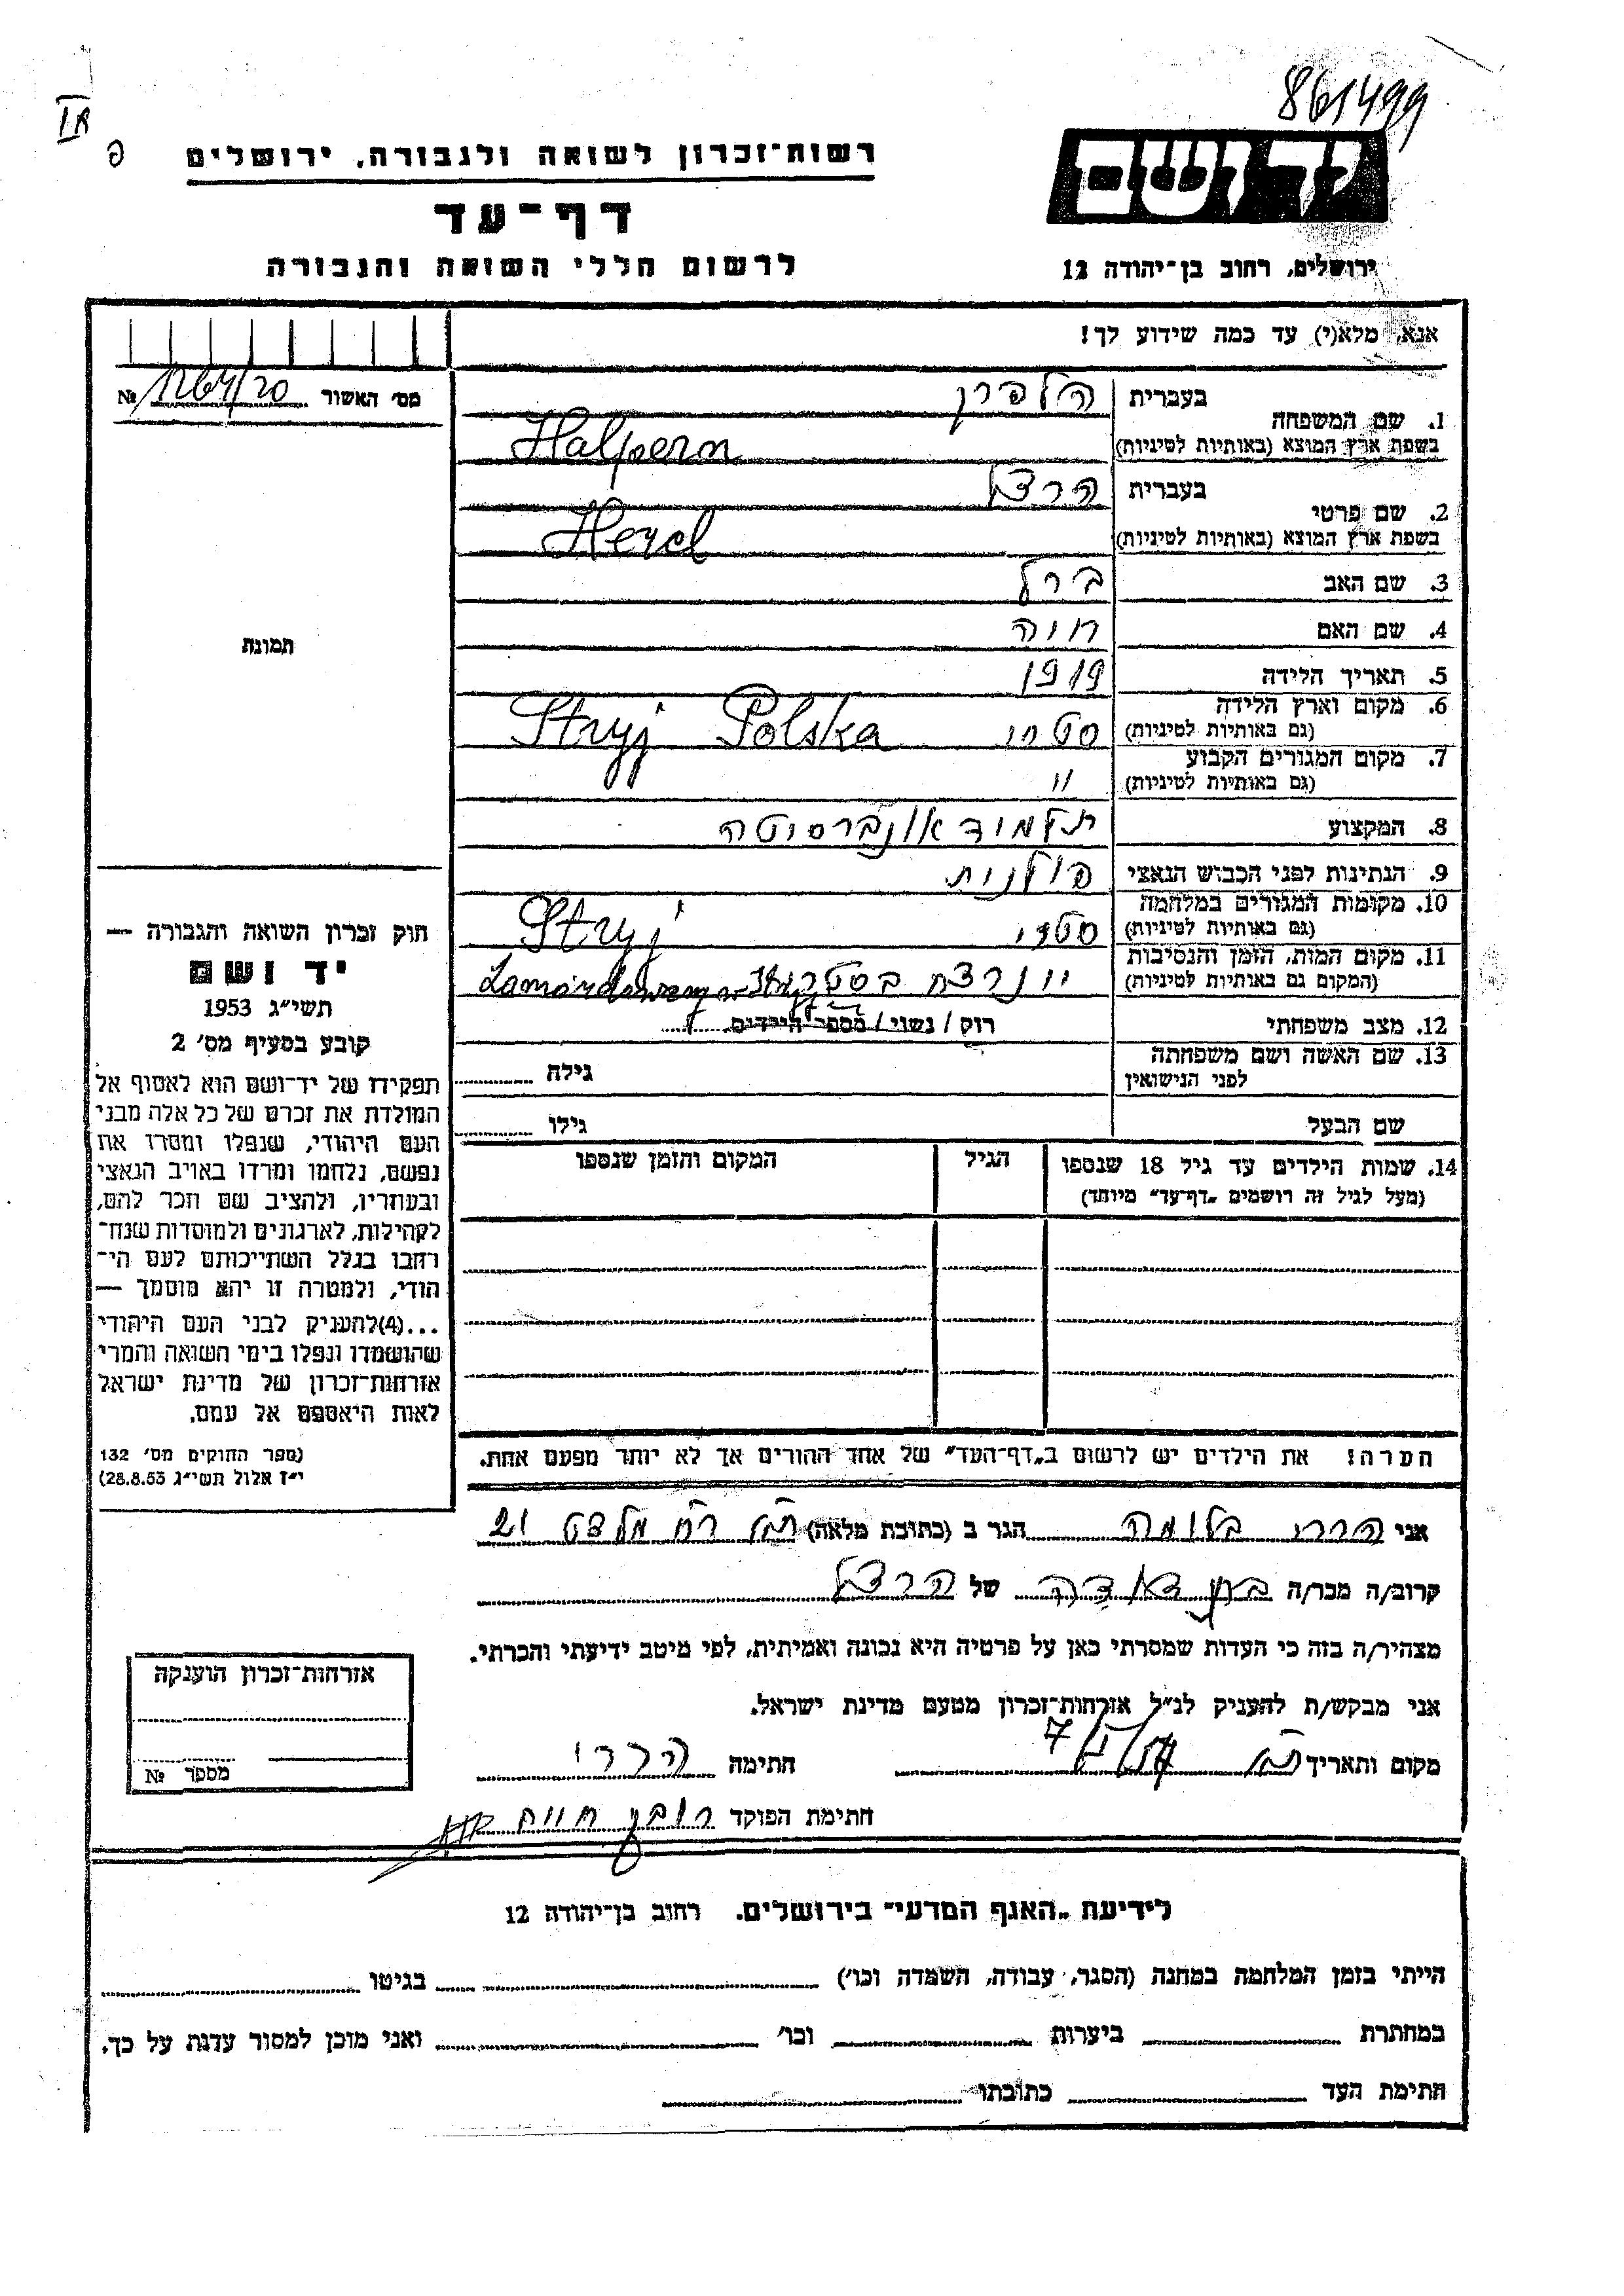 861499
IR
פ
רשות־זכרון לשואה ולגבורה, ירושלים
דף־עד
לרשום חללי השואה והגבורה
יד ושם
ירושלים, רחוב בן־יהודה 12
אנא, מלא(י) עד כמה שידוע לך!
מס׳ האשור № 1264/20
תמונה
1. שם המשפחה בעברית הלפרן
בשפת ארץ המוצא (באותיות לטיניות) Halpern
2. שם פרטי בעברית הרצל
בשפת ארץ המוצא (באותיות לטיניות) Hercl
3. שם האב ברל
4. שם האם חוה
5. תאריך הלידה 1919
6. מקום וארץ הלידה
(גם באותיות לטיניות) סטרי Stryj Polska
7. מקום המגורים הקבוע
(גם באותיות לטיניות) "
8. המקצוע תלמיד אוניברסיטה
9. הנתינות לפני הכבוש הנאצי פולנית
10. מקומות המגורים במלחמה
(גם באותיות לטיניות) סטרי Stryj
11. מקום המות, הזמן והנסיבות
(המקום גם באותיות לטיניות) נרצח בסטרי
12. מצב משפחתי רוק / נשוי / מספר הילדים
13. שם האשה ושם משפחתה
לפני הנישואין גילה
שם הבעל גילו
14. שמות הילדים עד גיל 18 שנספו הגיל המקום והזמן שנספו
(מעל לגיל זה רושמים „דף־עד" מיוחד)
הערה! את הילדים יש לרשום ב„דף־העד" של אחד ההורים אך לא יותר מפעם אחת.
חוק זכרון השואה והגבורה —
יד ושם
תשי״ג 1953
קובע בסעיף מס׳ 2
תפקידו של יד־ושם הוא לאסוף אל
המולדת את זכרם של כל אלה מבני
העם היהודי, שנפלו ומסרו את
נפשם, נלחמו ומרדו באויב הנאצי
ובעוזריו, ולהציב שם וזכר להם,
לקהילות, לארגונים ולמוסדות שנח־
רבו בגלל השתייכותם לעם הי־
הודי, ולמטרה זו יהא מוסמך —
...(4)להעניק לבני העם היהודי
שהושמדו ונפלו בימי השואה והמרי
אזרחות־זכרון של מדינת ישראל
לאות היאספם אל עמם.
(ספר החוקים מס׳ 132
י״ז אלול תשי״ג 28.8.53)
אני הררי בלומה הגר ב (כתובת מלאה) 21
קרוב/ה מכר/ה בת דודה של הרצל
מצהיר/ה בזה כי העדות שמסרתי כאן על פרטיה היא נכונה ואמיתית, לפי מיטב ידיעתי והכרתי.
אני מבקש/ת להעניק לנ״ל אזרחות־זכרון מטעם מדינת ישראל.
מקום ותאריך חתימה הררי
חתימת הפוקד ראובן חיים
אזרחות־זכרון הוענקה
מספר №
לידיעת „האגף המדעי" בירושלים. רחוב בן־יהודה 12
הייתי בזמן המלחמה במחנה (הסגר, עבודה, השמדה וכו׳) בגיטו
במחתרת ביערות וכו׳ ואני מוכן למסור עדות על כך.
חתימת העד כתובתו